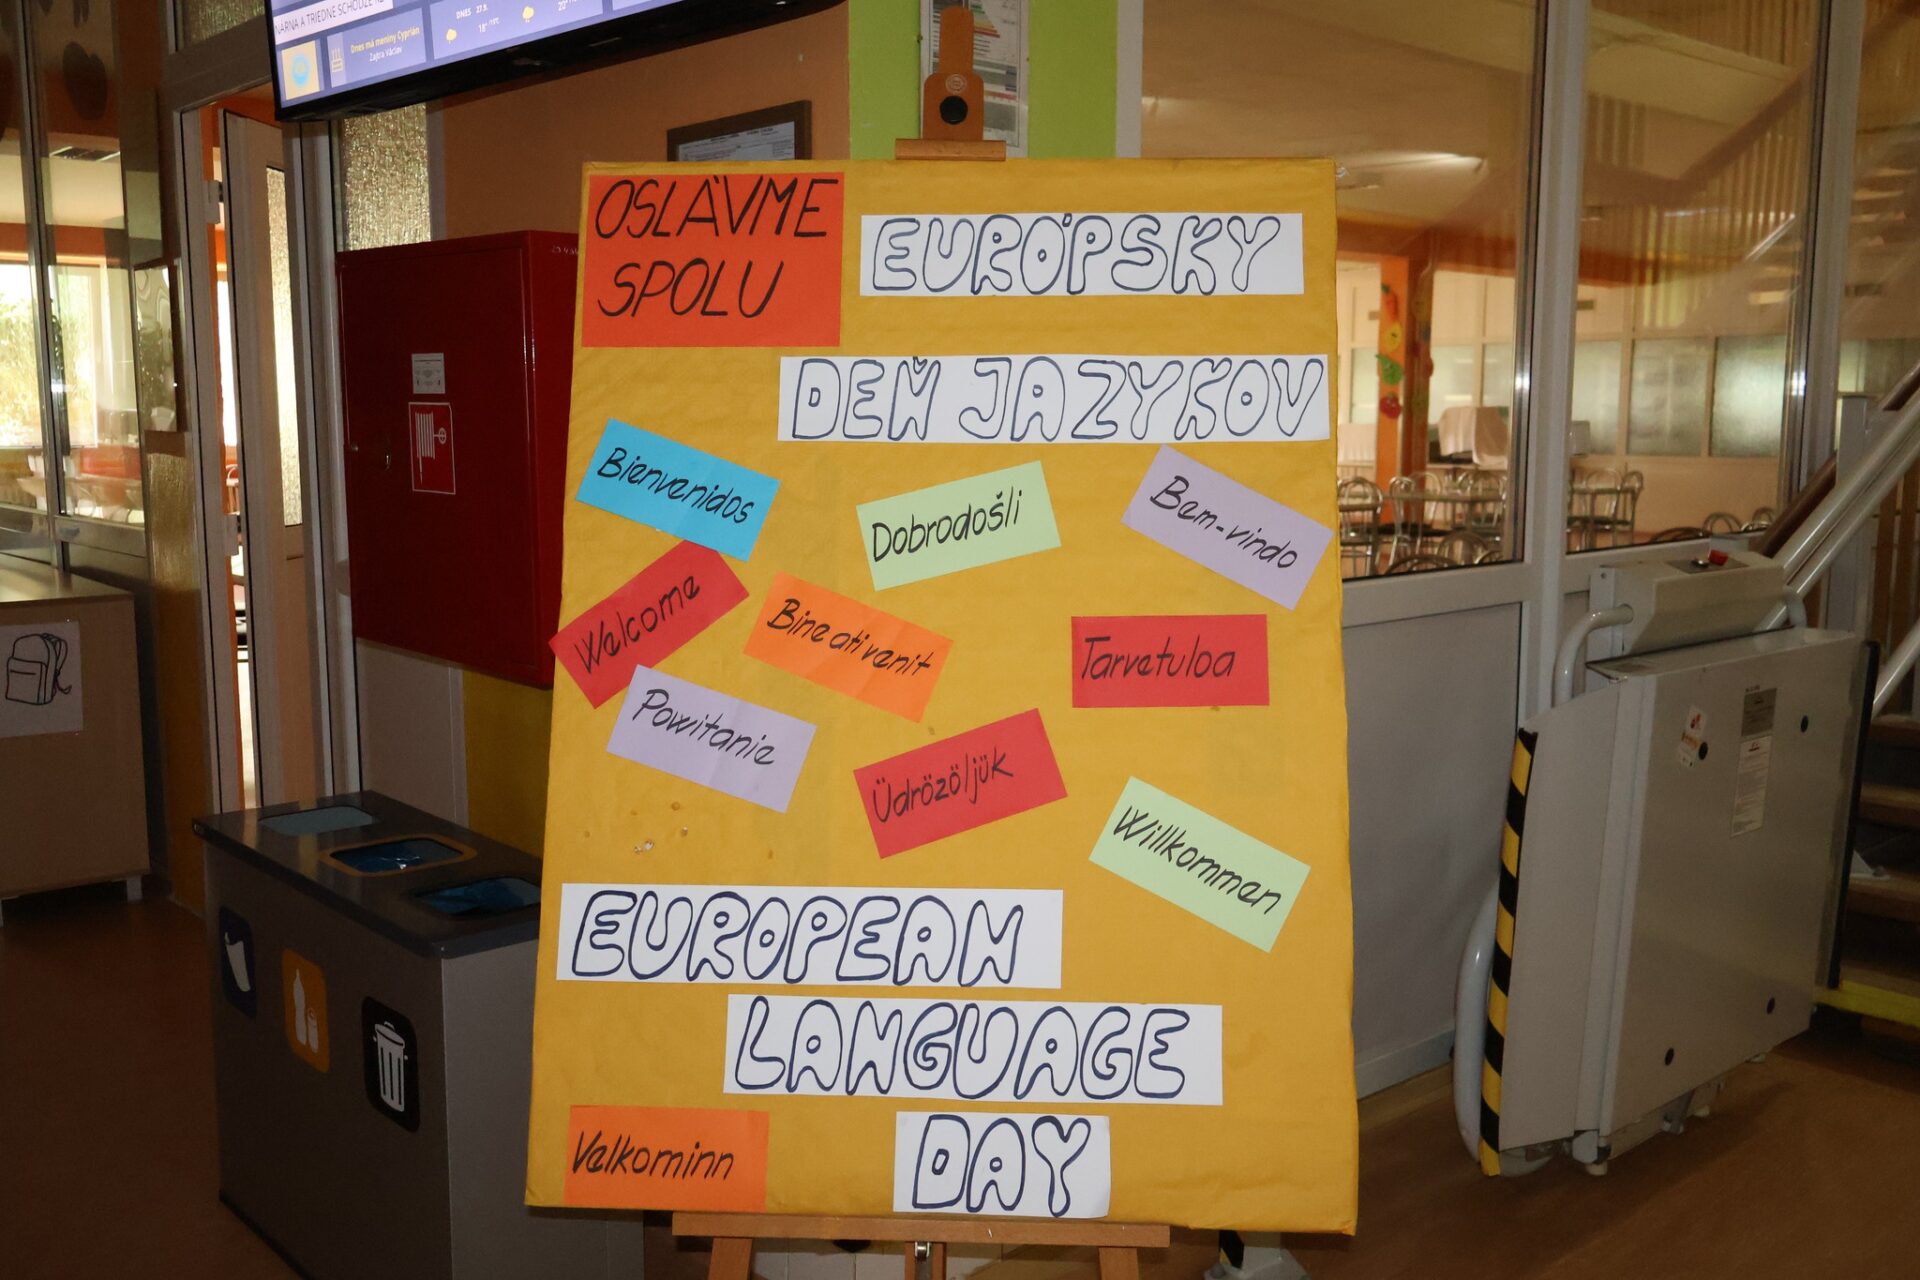 NÁRNA A TRIEDNE SCHÔDZE RZ
DNES 27.9.
18°/15°C
20°
Dnes má meniny Cyprián
Zajtra Václav
OSLÁVME
SPOLU
EURÓPSKY
DEŇ JAZYKOV
Bienvenidos
Dobrodošli
Bem-vindo
Welcome
Bine ati venit
Tarvetuloa
Powitanie
Üdrözöljük
Willkommen
EUROPEAN
LANGUAGE
DAY
Velkominn